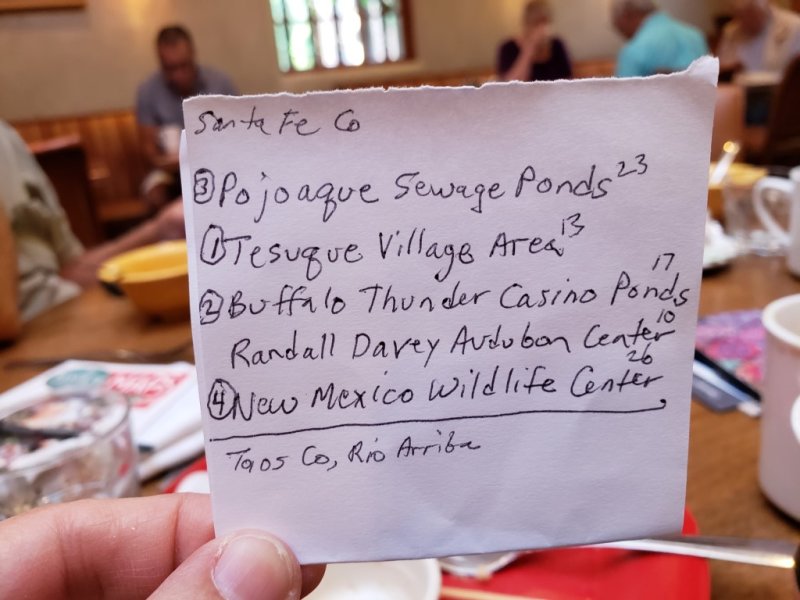 Santa Fe Co
③ Pojoaque Sewage Ponds 23
① Tesuque Village Area 13
② Buffalo Thunder Casino Ponds 17
Randall Davey Audubon Center 10
④ New Mexico Wildlife Center 26
Taos Co, Rio Arriba